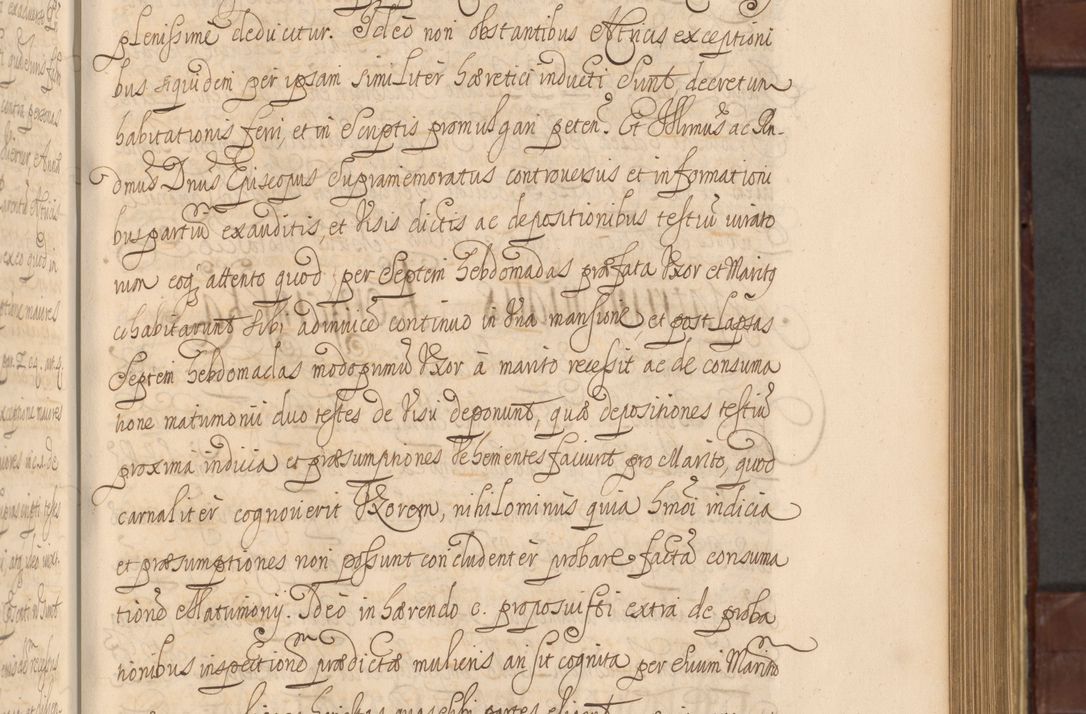 plenissime deducitur. Ideò non obstantibus Atricis exceptioni
bus siquidem per ipsam similitèr hæretici inducti sunt, decretum
habitationis ferri, et in Scriptis promulgari peteñ. Et Illmus ac Rn-
dmus Dnus Episcopus Supramemoratus controversus et informationi
bus partiũ exauditis, et Visis dictis ac depositionibus testiũ iurato
rum eoq attento quod per Septem hebdomadas præfata Vxor et Marito
cohabitarunt sibi adinvicẽ continuò in Vna mansione, et post Lapsas
Septem hebdomadas modo primũ Vxor à marito recessit ac de consuma
tione matrimonii duo testes de Visu deponunt, quæ depositiones testiũ
proxima indicia et præsumptiones Vehementes faciunt pro Marito, quod
carnalitèr cognoverit Vxorem, nihilominùs quia hmõi indicia
et præsumptiones non possunt concludentèr probare factã consuma
tionẽ Matrimonij. Ideò inhærendo c. proposuisti extra de proba
tionibus inspectionẽ prædictæ mulieris an sit cognita per Suum Maritũ